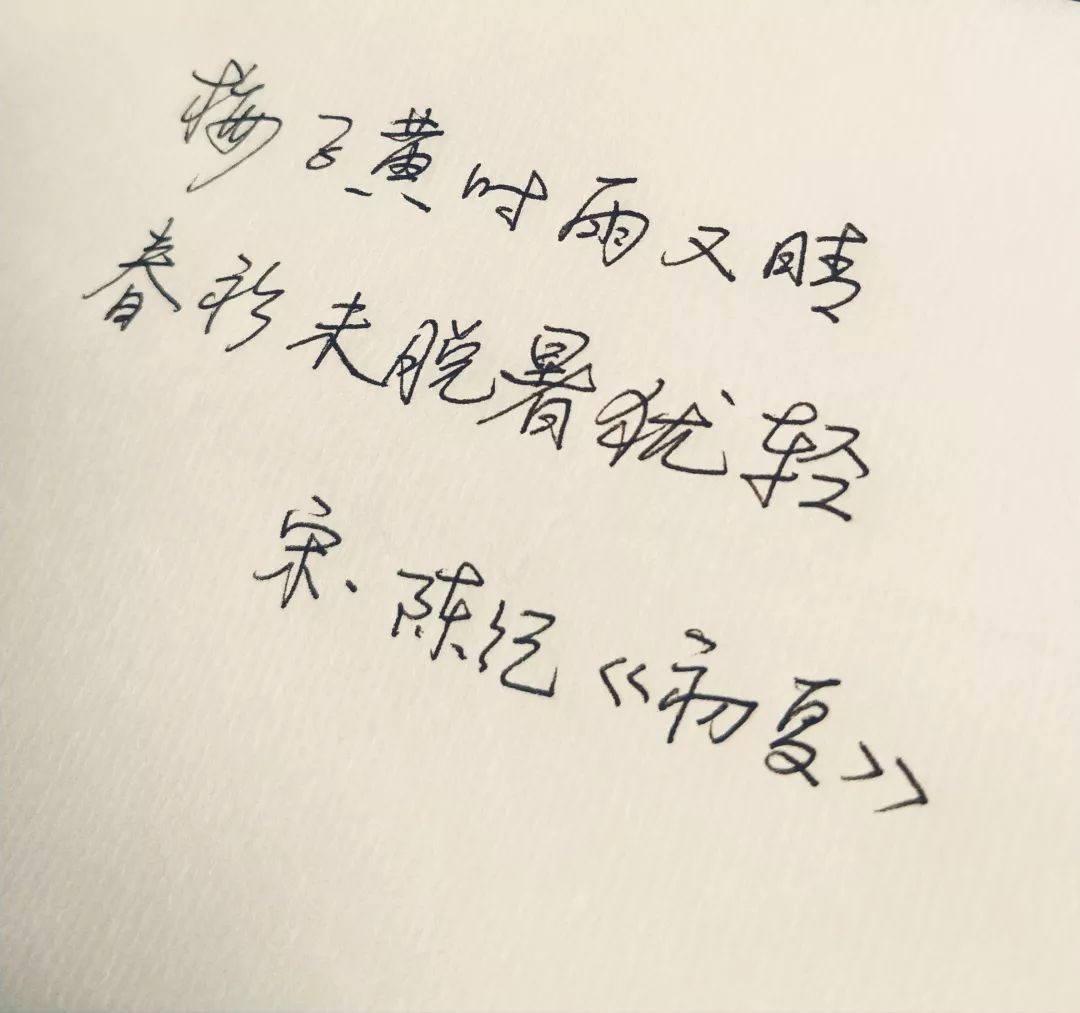 梅子黄时雨又晴
春衫未脱暑犹轻
宋·陈纪《初夏》